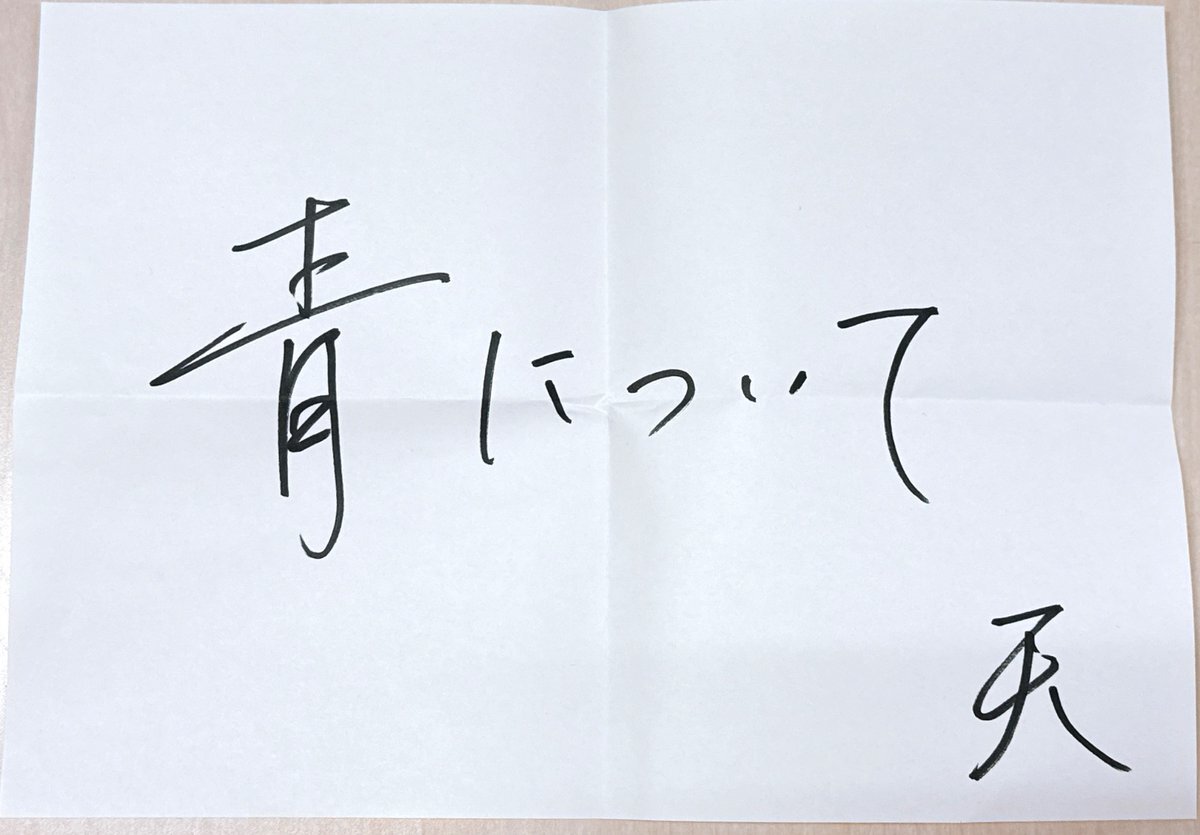 青について
天